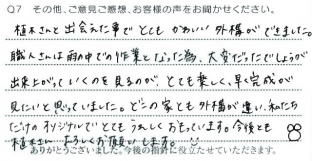 Q7 その他、ご意見ご感想、お客様の声をお聞かせください。
植木さんと出会えた事でとても かわいい 外構ができました。
職人さんは雨の中での作業となった為、大変だったでしょうが
出来上がっていくのを見るのが、とても楽しく、早く完成が
見たいと思っていました。どこの家とも外構が違い、私たち
だけのオリジナルでとてもうれしくおもっています。今後とも
植木さん よろしくお願いします。
ありがとうございました。今後の指針に役立たせていただきます。